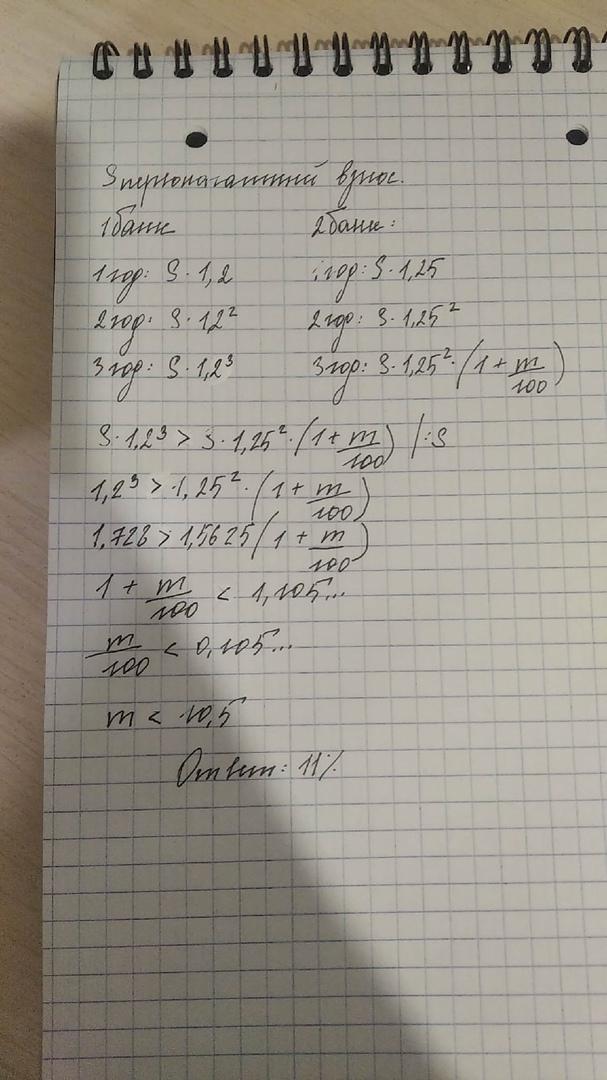 S первоначальный взнос.
1 банк 2 банк:
1 год: S · 1,2 1 год: S · 1,25
2 год: S · 1,2² 2 год: S · 1,25²
3 год: S · 1,2³ 3 год: S · 1,25² · (1 + m/100)
S · 1,2³ > S · 1,25² · (1 + m/100) |:S
1,2³ > 1,25² · (1 + m/100)
1,728 > 1,5625 (1 + m/100)
1 + m/100 < 1,105...
m/100 < 0,105...
m < 10,5
Ответ: 11%